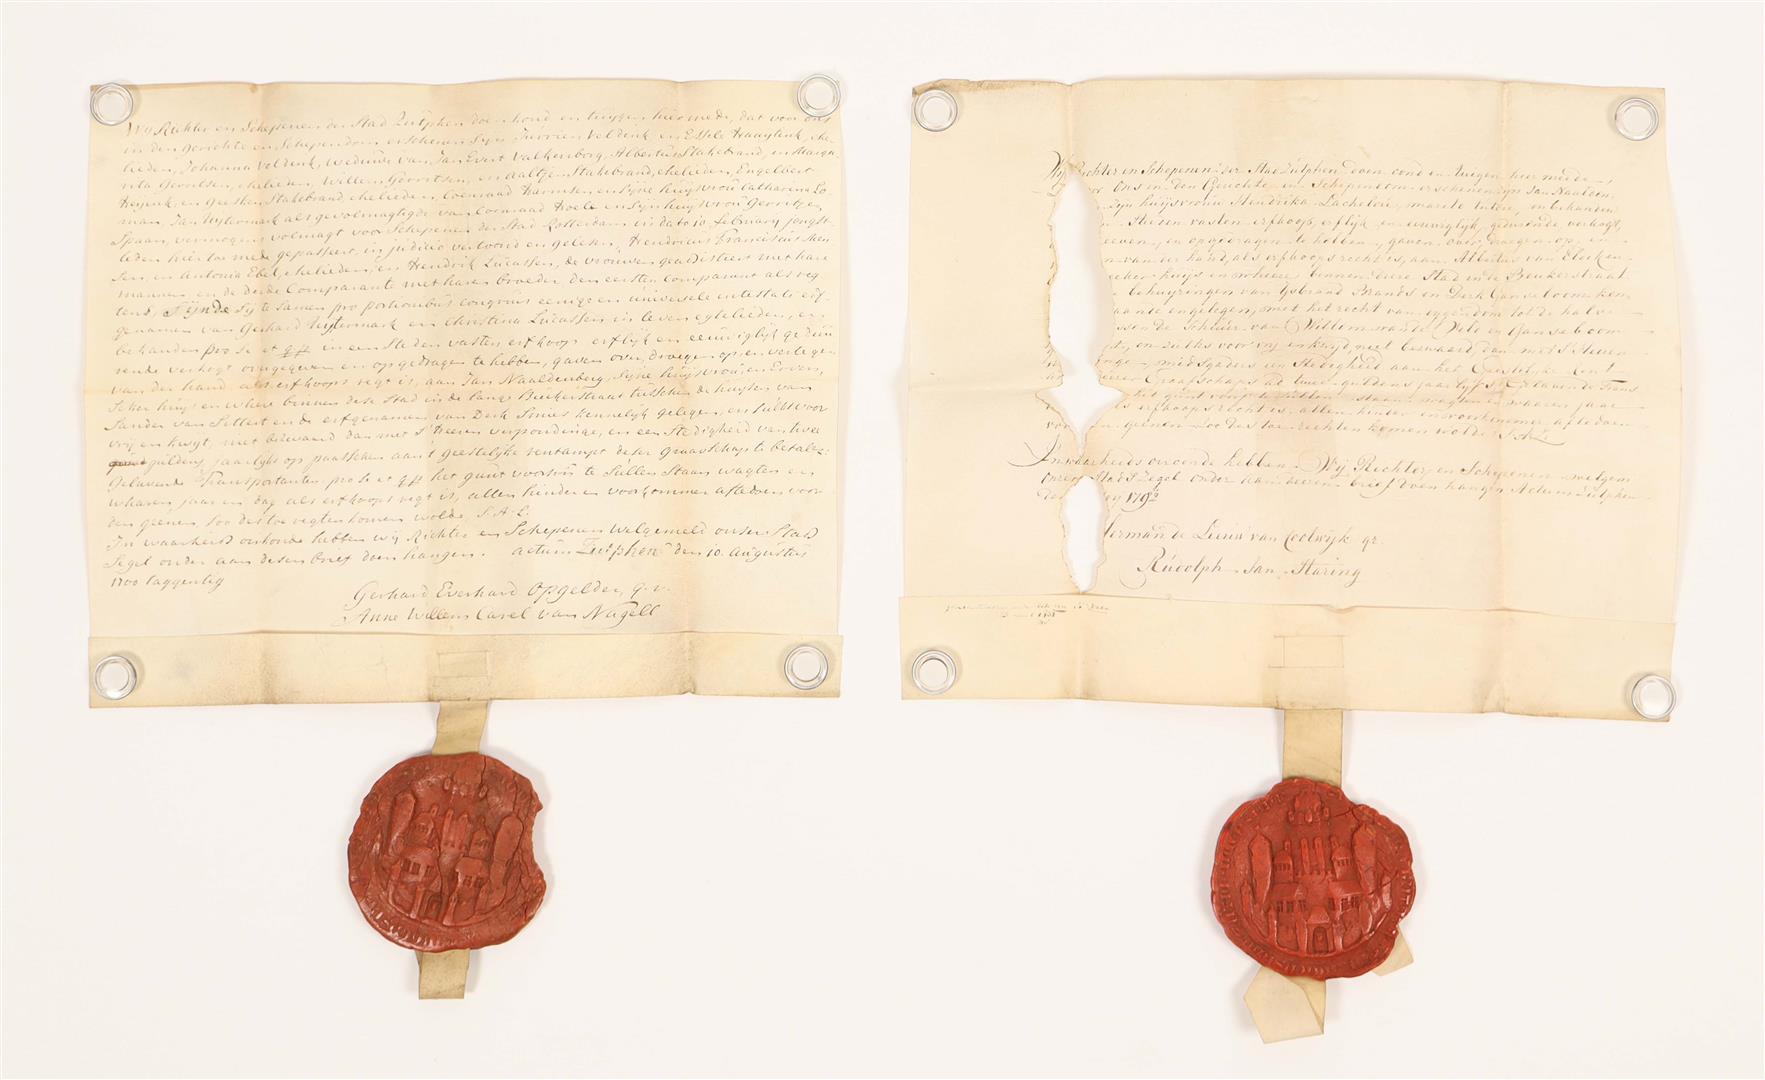 Wy Richter en Schepenen der Stad Zutphen doen kond en tuygen hier mede, dat voor ons
in den gerichte en Schependom erschenen syn Jurrien Veldink en Essele Haaytink, ehe-
lieden, Johanna Veldink, Weduwe van Jan Evert Valkenborg, Albertus Stakebrand, en Marga-
rita Gerritsen, ehelieden, Willem Gerritsen, en Aaltjen Stakebrand, ehelieden, Engelbert
en Geesken Stakebrand, ehelieden, Coenraad Harmsen en Syne huysvrou Catharina Lo
man, Jan Uytermark als gevolmagtigde van Coenraad Hoele en Syn huysvrou Gerritjen
Spaan, vermogens volmagt voor Schepenen der Stad Rotterdam in dato 10 February jongst-
leden hier toe mede gepasseert, in judicio vertoond en gelesen, Hendricus Franciscus
en Antonia Ebel, ehelieden, en Hendrik Lucassen, de vrouwen geadsisteert met hare
mannen, en de derde Comparante met haren broeder, den eersten Comparant als
Sijnde Sy te Samen pro portionibus congruis eenige en universele intestate erf-
genamen van Gerhard Uytermark en Christina Lucassen in leven eghtelieden, en
bekanden pro se et qq in een Steden vasten erfkoop erflijk en eeuwiglijk gedúú
rende verkogt overgegeven en opgedragen te hebben, gaven over, droegen op en vertegen
van der hand als erfkoops regt is, aan Jan Naaldenberg, Syne huysvrou en Erven,
Seker huys en where binnen dese Stad in de lange Beukerstraat tusschen de huysen van
Sander van Sittert en de erfgenamen van Derk Smies kennelijk gelegen, en Sulks voor
vrij en kwijt, niet beswaard dan met 's Heeren verpondinge, en een Stedigheid van twee
guldens jaarlijks op paasschen aan 't geestelijke rentampt deser Graafschap te betalen:
Gelavende Transportanten pro se et qq het gunt voorsz te Sullen Staan wagten en
wharen jaar en dag als erfkoops regt is, allen hinder en voorkommer aftedoen voor
den geenen, soo des toe regten komen wolde. S.A.L.
In waarheids oirkonde hebben wij Richter en Schepenen welgemeld onser Stad
Segel onder aan desen brief doen hangen. actum Zutphen den 10. augustus
1700 taggentig
Gerhard Everhard Opgelder, q. v.
Anne Willem Carel van Nagell
Wij Richter en Schepenen der Stad Zutphen doen cond en tuigen hier mede,
voor Ons in den Gerichte en Schependom erschenen zyn Jan Naalden
Zijn huijsvrouw Hendrika Lachelou, marito tutore, en bekanden
Steden vasten erfkoop, erflijk en eeuwiglijk, gedurende verkogt,
geeven, en opgedragen te hebben, gaven over, droegen op, en
van der hand, als erfkoops recht is, aan Albertus van
seeker huijs en where binnen deese Stad in de Beukerstraat
behuijzingen van Ysbrand Brands en Derk Ganseboom ken
en gelegen, met het recht van eygendom tot de halve
de Scheuer van Willem van de Velde en Ganseboom
en zulks voor vry en kwyd, niet beswaard, dan met 's Heeren
mids gaders een Stedigheid aan het Geestelijke Rent
Graafschaps ad twee guldens jaarlijks: Gelavende Trans
het gunt voorsz te zullen staan, wagten en waaren jaar
als erfkoops recht is, allen hinder en voorkommer aftedoen
geenen, zoo des toe rechten komen wolde. S.A.L.
In waarheids oirconde hebben Wij Richter en Schepenen welgem
onzer Stads Zegel onder aan deeven brief doen hangen Actum Zutphen
1792
Herman de Leeuw van Coolwijk qr.
Rudolph Jan Staring